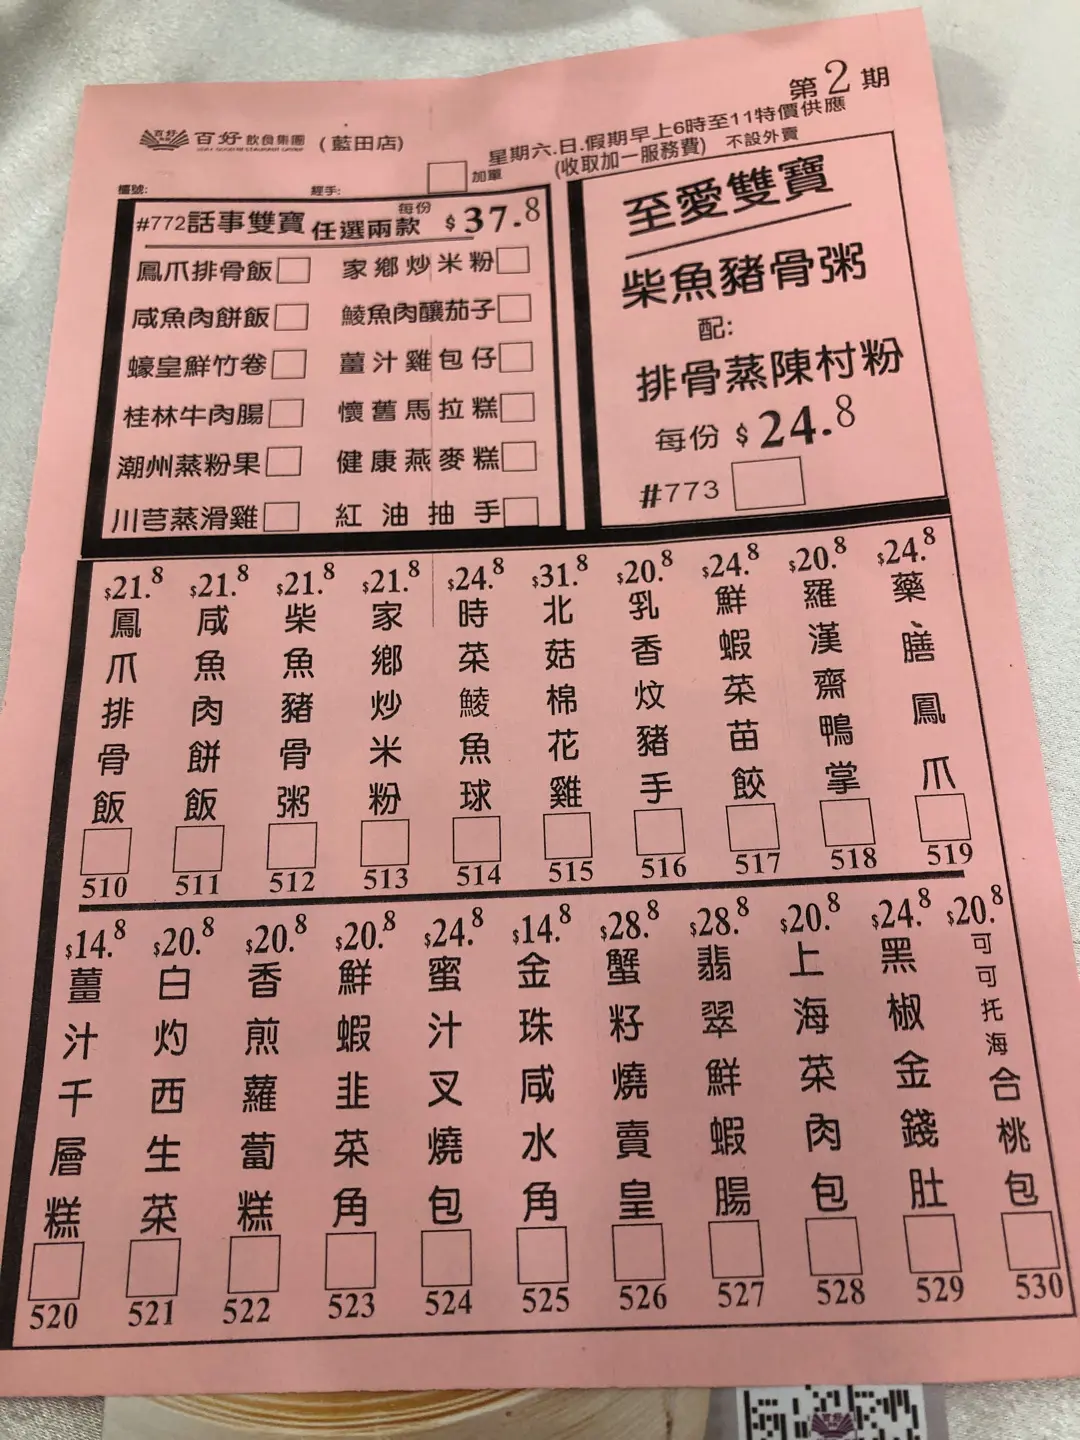 第2期
百好飲食集團 (藍田店)
星期六.日.假期早上6時至11特價供應
(收取加一服務費) 不設外賣
檯號: 經手: 加單
#772話事雙寶 任選兩款 每份 $37.8
鳳爪排骨飯 家鄉炒米粉
咸魚肉餅飯 鯪魚肉釀茄子
蠔皇鮮竹卷 薑汁雞包仔
桂林牛肉腸 懷舊馬拉糕
潮州蒸粉果 健康燕麥糕
川芎蒸滑雞 紅油抽手
至愛雙寶
柴魚豬骨粥
配:
排骨蒸陳村粉
每份 $24.8
#773
$21.8 鳳爪排骨飯 510
$21.8 咸魚肉餅飯 511
$21.8 柴魚豬骨粥 512
$21.8 家鄉炒米粉 513
$24.8 時菜鯪魚球 514
$31.8 北菇棉花雞 515
$20.8 乳香炆豬手 516
$24.8 鮮蝦菜苗餃 517
$20.8 羅漢齋鴨掌 518
$24.8 藥膳鳳爪 519
$14.8 薑汁千層糕 520
$20.8 白灼西生菜 521
$20.8 香煎蘿蔔糕 522
$20.8 鮮蝦韭菜角 523
$24.8 蜜汁叉燒包 524
$14.8 金珠咸水角 525
$28.8 蟹籽燒賣皇 526
$28.8 翡翠鮮蝦腸 527
$20.8 上海菜肉包 528
$24.8 黑椒金錢肚 529
$20.8 可可托海合桃包 530
百好